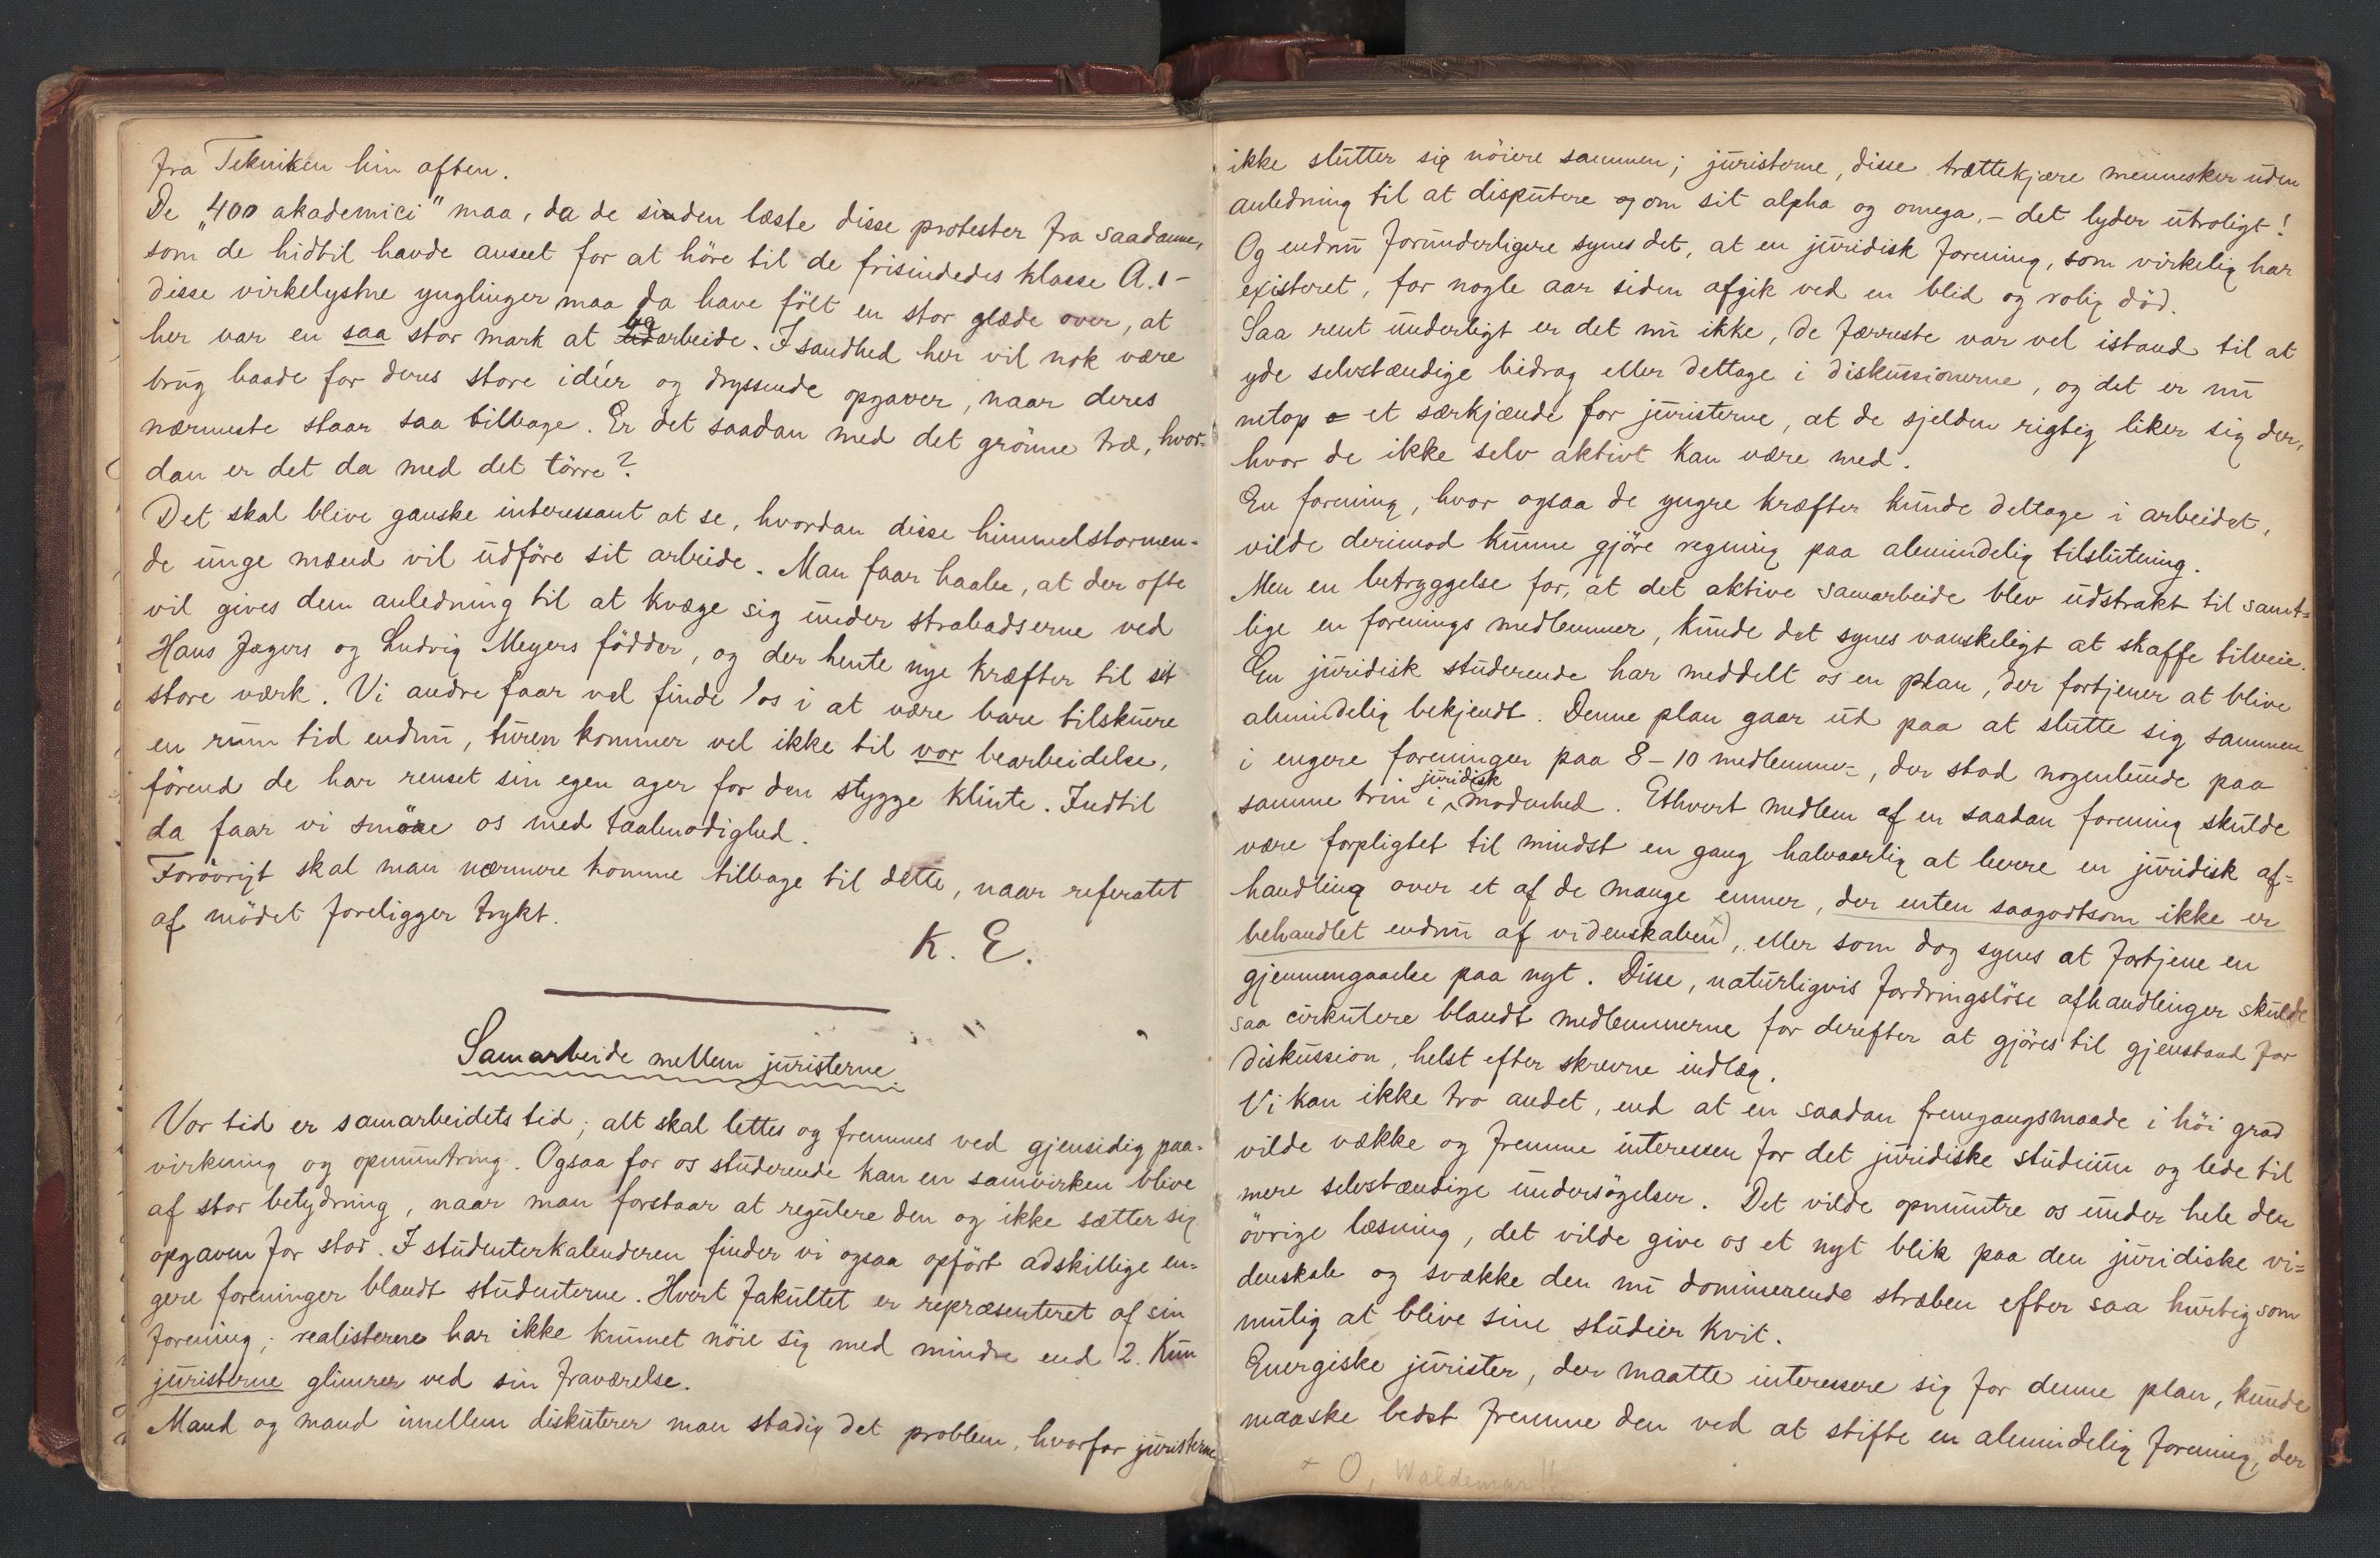 fra Tekniken hin aften.
De "400 akademici" maa, da de sinden læste disse protester fra saadanne,
som de hidtil havde anseet for at höre til de frisindedes klasse A.1 -
disse virkelystne ynglinger maa da have fölt en stor glæde over, at
her var en saa stor mark at bearbeide. I sandhed her vil nok være
brug baade for deres store idéer og dryssende opgaver, naar deres
nærmeste staar saa tilbage. Er det saadan med det grönne træ, hvor-
dan er det da med det törre?
Det skal blive ganske interessant at se, hvordan disse himmelstormen-
de unge mænd vil udföre sit arbeide. Man faar haabe, at der ofte
vil gives dem anledning til at kvæge sig under strabadserne ved
Hans Jægers og Ludvig Meyers födder, og der hente nye kræfter til sit
store værk. Vi andre faar vel finde os i at være bare tilskuere
en rum tid endnu, turen kommer vel ikke til vor bearbeidelse,
förend de har renset sin egen ager for den stygge klinte. Indtil
da faar vi smöre os med taalmodighed.
Forövrigt skal man nærmere komme tilbage til dette, naar referatet
af mödet foreligger trykt.
K. E.
Samarbeide mellem juristerne.
Vor tid er samarbeidets tid; alt skal lettes og fremmes ved gjensidig paa-
virkning og opmuntring. Ogsaa for os studerende kan en samvirken blive
af stor betydning, naar man forstaar at regulere den og ikke sætter sig
opgaven for stor. I studenterkalenderen finder vi ogsaa opfört adskillige en-
gere foreninger blandt studenterne. Hvert fakultet er repræsenteret af sin
forening; realisterne har ikke kunnet nöie sig med mindre end 2. Kun
juristerne glimrer ved sin fraværelse.
Mand og mand imellem diskuterer man stadig det problem, hvorfor juristerne
ikke slutter sig nöiere sammen; juristerne, disse trættekjære mennesker uden
anledning til at disputere som sit alpha og omega, - det lyder utroligt!
Og endnu forunderligere synes det, at en juridisk forening, som virkelig har
existeret, for nogle aar siden afgik ved en blid og rolig död.
Saa rent underligt er det nu ikke, de færreste var vel istand til at
yde selvstændige bidrag eller deltage i diskussionerne, og det er nu
netop et særkjende for juristerne, at de sjelden rigtig liker sig der,
hvor de ikke selv aktivt kan være med.
En forening, hvor ogsaa de yngre kræfter kunde deltage i arbeidet,
vilde derimod kunne gjöre regning paa almindelig tilslutning.
Men en betryggelse for, at det aktive samarbeide blev udstrakt til samt-
lige en forenings medlemmer, kunde det synes vanskeligt at skaffe tilveie.
En juridisk studerende har meddelt os en plan, der fortjener at blive
almindelig bekjendt. Denne plan gaar ud paa at slutte sig sammen
i engere foreninger paa 8-10 medlemmer, der stod nogenlunde paa
samme trin i juridisk modenhed. Ethvert medlem af en saadan forening skulde
være forpligtet til mindst en gang halvaarlig at levere en juridisk af-
handling over et af de mange emner, der enten saagodtsom ikke er
behandlet endnu af videnskaben x), eller som dog synes at fortjene en
gjennemgaaelse paa nyt. Disse, naturligvis fordringslöse afhandlinger skulde
saa cirkulere blandt medlemmerne for derefter at gjöres til gjenstand for
diskussion, helst efter skrevne indlæg.
Vi kan ikke tro andet, end at en saadan fremgangsmaade i höi grad
vilde vække og fremme interessen for det juridiske studium og lede til
mere selvstændige undersögelser. Det vilde opmuntre os under hele den
övrige læsning, det vilde give os et nyt blik paa den juridiske vi-
denskab og svække den nu dominerende stræben efter saa hurtig som
mulig at blive sine studier kvit.
Energiske jurister, der maatte interessere sig for denne plan, kunde
maaske bedst fremme den ved at stifte en almindelig forening, der
x O, Waldemar!!